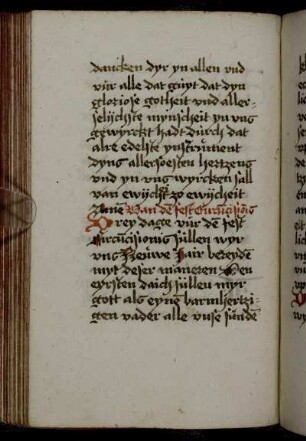 dancken dyr yn allen vnd
vür alle dat guyt dat dyn
gloriose gotheit vnd aller-
selichste mynscheit yn vns
gewyrckt hadt durch dat
alre edelste ynstrument
dyns allersoesten hertzens
vnd yn vns wyrcken sall
van ewicheit zo ewicheit
Amē Van dē fest Circūcisiōis
Drey dage vur dē fest
Circūcisionis sullen wyr
vns Neuwe Jair bereyden
myt deser maneren Den
eyrsten daich sullen wyr
gott als eynē barmhertzi-
gen vader alle vnse sundē